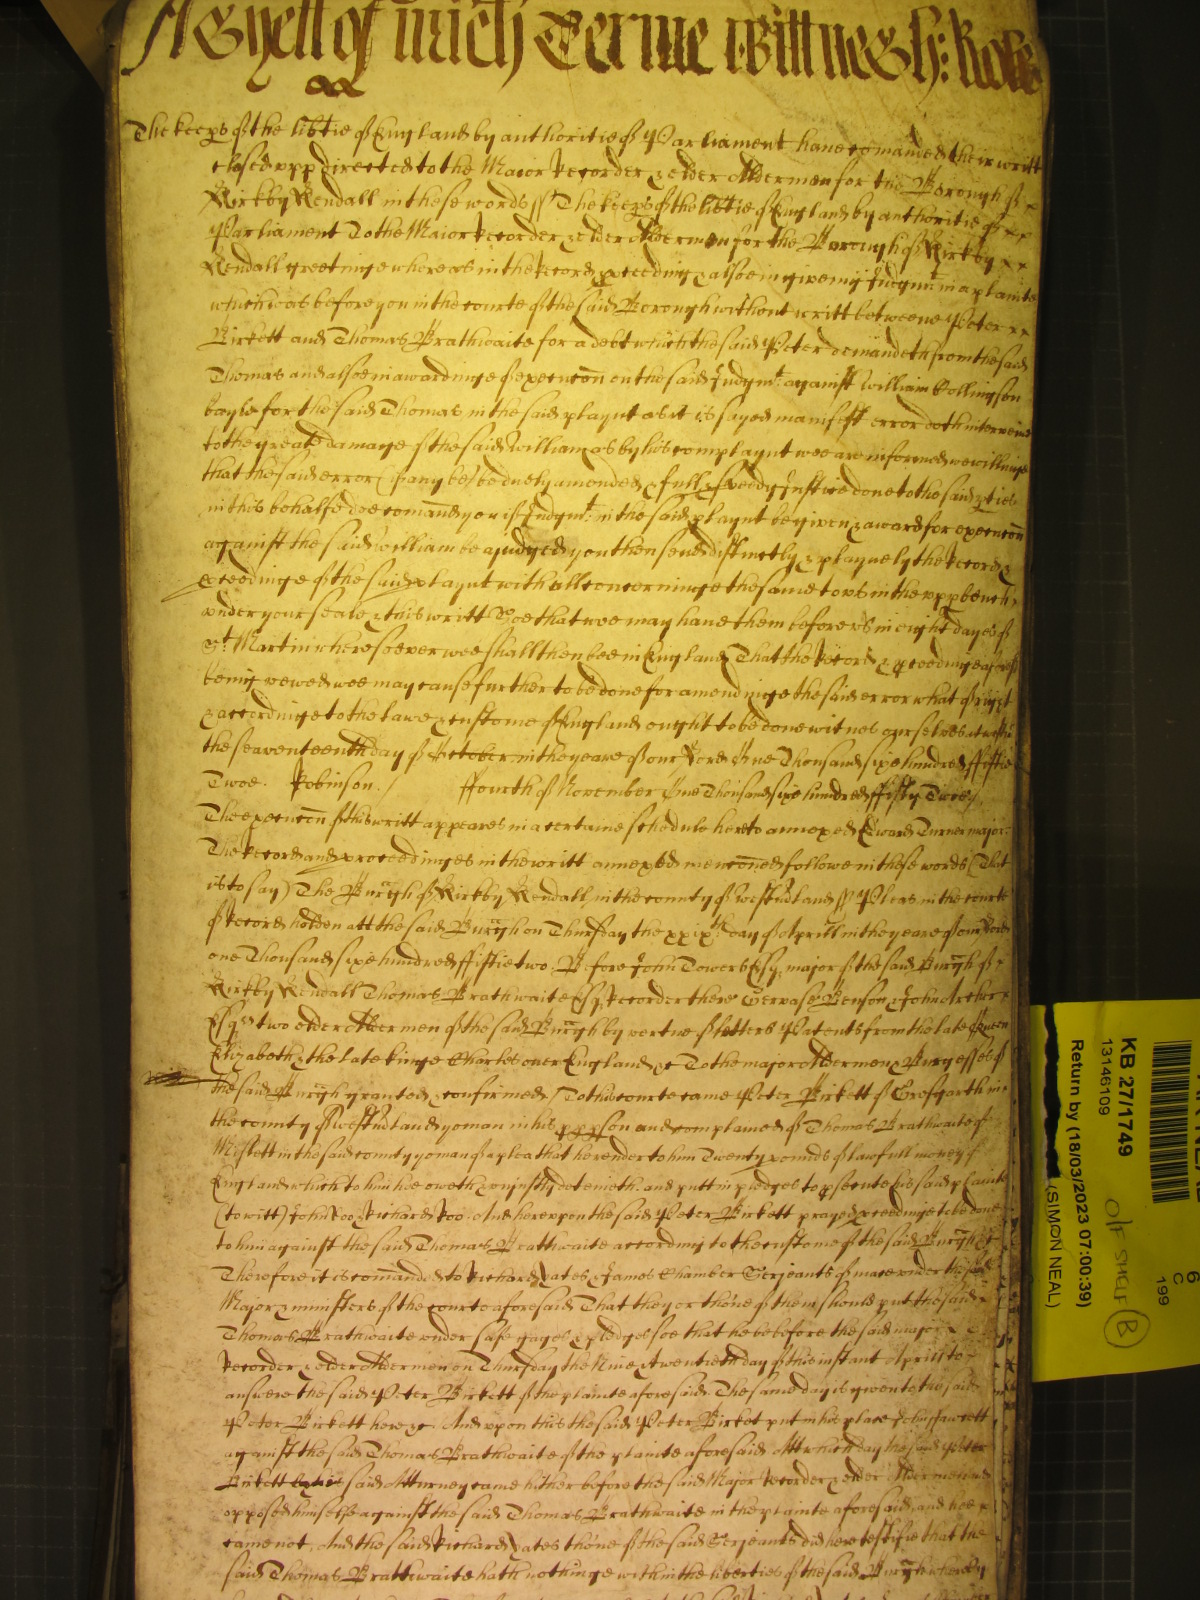 As yett of Mich Terme Wittnes H: Rolle
The keeps of the libtie of England by authoritie of Parliament have comanded their writt
closed upp directed to the Maior Recorder & elder Aldermen for the Borough of
Kirkby Kendall in these words ss The keeps of the libtie of England by authoritie of
Parliament To the Maior Recorder & elder Aldermen for the Borough of Kirkby
Kendall greetinge whereas in the Record & pceeding & alsoe in giveing Judgmt in a plainte
which was before you in the courte of the said Borough without writt betweene Peter
Birkett and Thomas Brathwaite for a debt which the said Peter demandeth from the said
Thomas and alsoe in awardinge of execucon on the said Judgmt against William Collingson
bayle for the said Thomas in the said playnt as it is sayed manifest error doth intervene
to the greate damage of the said William as by his complaynt wee are informed we willinge
that the said error (if any be) be duely amended & full & speedy Justice done to the said pties
in this behalfe doe comand you if Judgmt in the said playnt be given & award for execucon
against the said William be ajudged you then send distinctly & playnely the Record &
pceedinge of the said playnt with all concerninge the same to us in the upp bench
under your seale & this writt Soe that we may have them before us in eight dayes of
St Martin wheresoever wee shall then bee in England That the Record & pceedinge aforesd
being vewed wee may cause further to be done for amendinge the said error what of right
& accordinge to the lawe & custome of England ought to be done witnes ourselves att
the seaventeenth day of October in the yeare of our Lord One Thousand sixe hundred ffiftie
Twoe. Robinson. / ffourth of November One Thousand sixe hundred ffifty Twoe
The execucon of this writt appeares in a certaine schedule hereto annexed Edward Turner major
The Record and proceedinges in the writt annexed menconed followe in these words (That
is to say) The Burgh of Kirkby Kendall in the county of Westmland ss Pleas in the courte
of Record holden att the said Burgh on Thursday the xxixth day of Aprill in the yeare of our Lord
one Thousand sixe hundred ffiftie two. Before John Towers Esq major of the said Burgh of
Kirkby Kendall Thomas Brathwaite Esq Recorder there Gervase Benson & John Archer
Esqrs two elder Aldermen of the said Burgh by vertue of letters Patents from the late Queen
Elizabeth & the late kinge Charles over England &c To the major Aldermen & Burgesses of
the said Burgh granted & confirmed / To this courte came Peter Birkett of Crosgarth in
the county of Westmland yoman in his pp pson and complained of Thomas Brathwaite of
Mislett in the said county yoman of a plea that he render to him Twenty pounds of lawfull money of
England which to him hee oweth & unjustly deteineth and putt in pledges to psecute his said plainte
(to witt) John Doo & Richard Roo. And hereupon the said Peter Birkett prayed pceedinge to be done
to him against the said Thomas Brathwaite according to the custome of the said Burgh &c
Therefore it is comanded to Richard yates & James Chamber Serjeants of mace under the said
Major & ministers of the courte aforesaid That they or thone of them should put the said
Thomas Brathwaite under safe gages & pledges soe that he be before the said major
Recorder & elder Aldermen on Thursday the Nine & twentieth day of this instant Aprill to
answere the said Peter Birkett of the plainte aforesaid The same day is given to the said
Peter Birkett here &c. And upon this the said Peter Birket put in his place John ffawcett
against the said Thomas Brathwaite of the plainte aforesaid Att which day the said Peter
Birkett by his said Atturney came hither before the said Major Recorder & elder Aldermen and
opposed himselfe against the said Thomas Brathwaite in the plainte aforesaid and hee
came not. And the said Richard yates thone of the said Serjeants did here testifie that the
said Thomas Brathwaite hath nothinge within the liberties of the said Burgh whereby
KB 27/1749
13146109
Return by (18/03/2023 07:00:39)
(SIMON NEAL)
O/F SHELF B
6
C
199